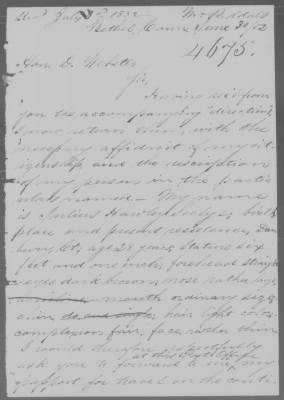 Rec'd July 2nd 1852
Bethel, Conn June 30/52
4675.
Hon. D. Webster
Sir,
Having rec'd from
you the accompanying "directions"
I now return him, with the
necessary affidavit of my cit-
izenship and the description
of my person in the partic-
ulars named — My name
is Julius Hawley Seelye, birth
place and present residence, Dan-
bury, Ct, age 28 years, stature six
feet and one inch, forehead straight
eyes dark brown, nose rather large
mouth ordinary size,
chin hair light color,
complexion fair, face rather thin
I would therefore respectfully
ask you to forward to me, at this Post Office my
passport for travel on the conti-